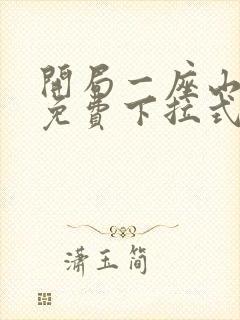 開局一座山
免費下拉式
潇玉简